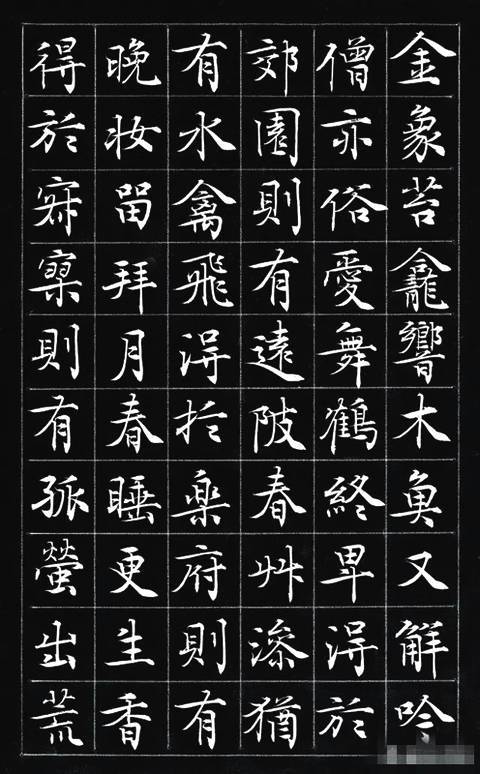 金象苔龕響木魚又解吟
僧亦俗愛舞鶴終卑得於
郊園則有遠陂春艸渗猶
有水禽飛得於楽府則有
晚妆留拜月春睡更生香
得於寂寞則有孤螢出荒